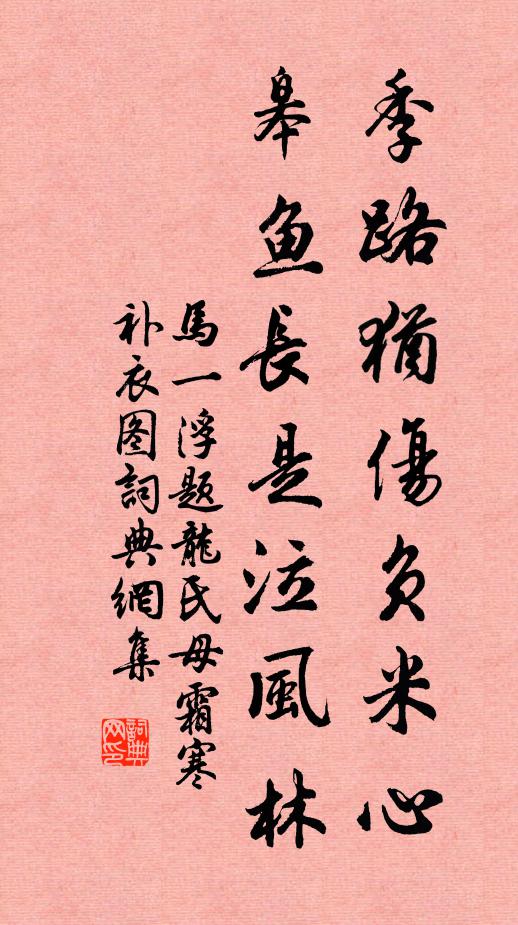 季路猶傷負米心
皋魚長是泣風林
馬一浮題龍氏母霜寒
补衣图詞典網集
詞典網印